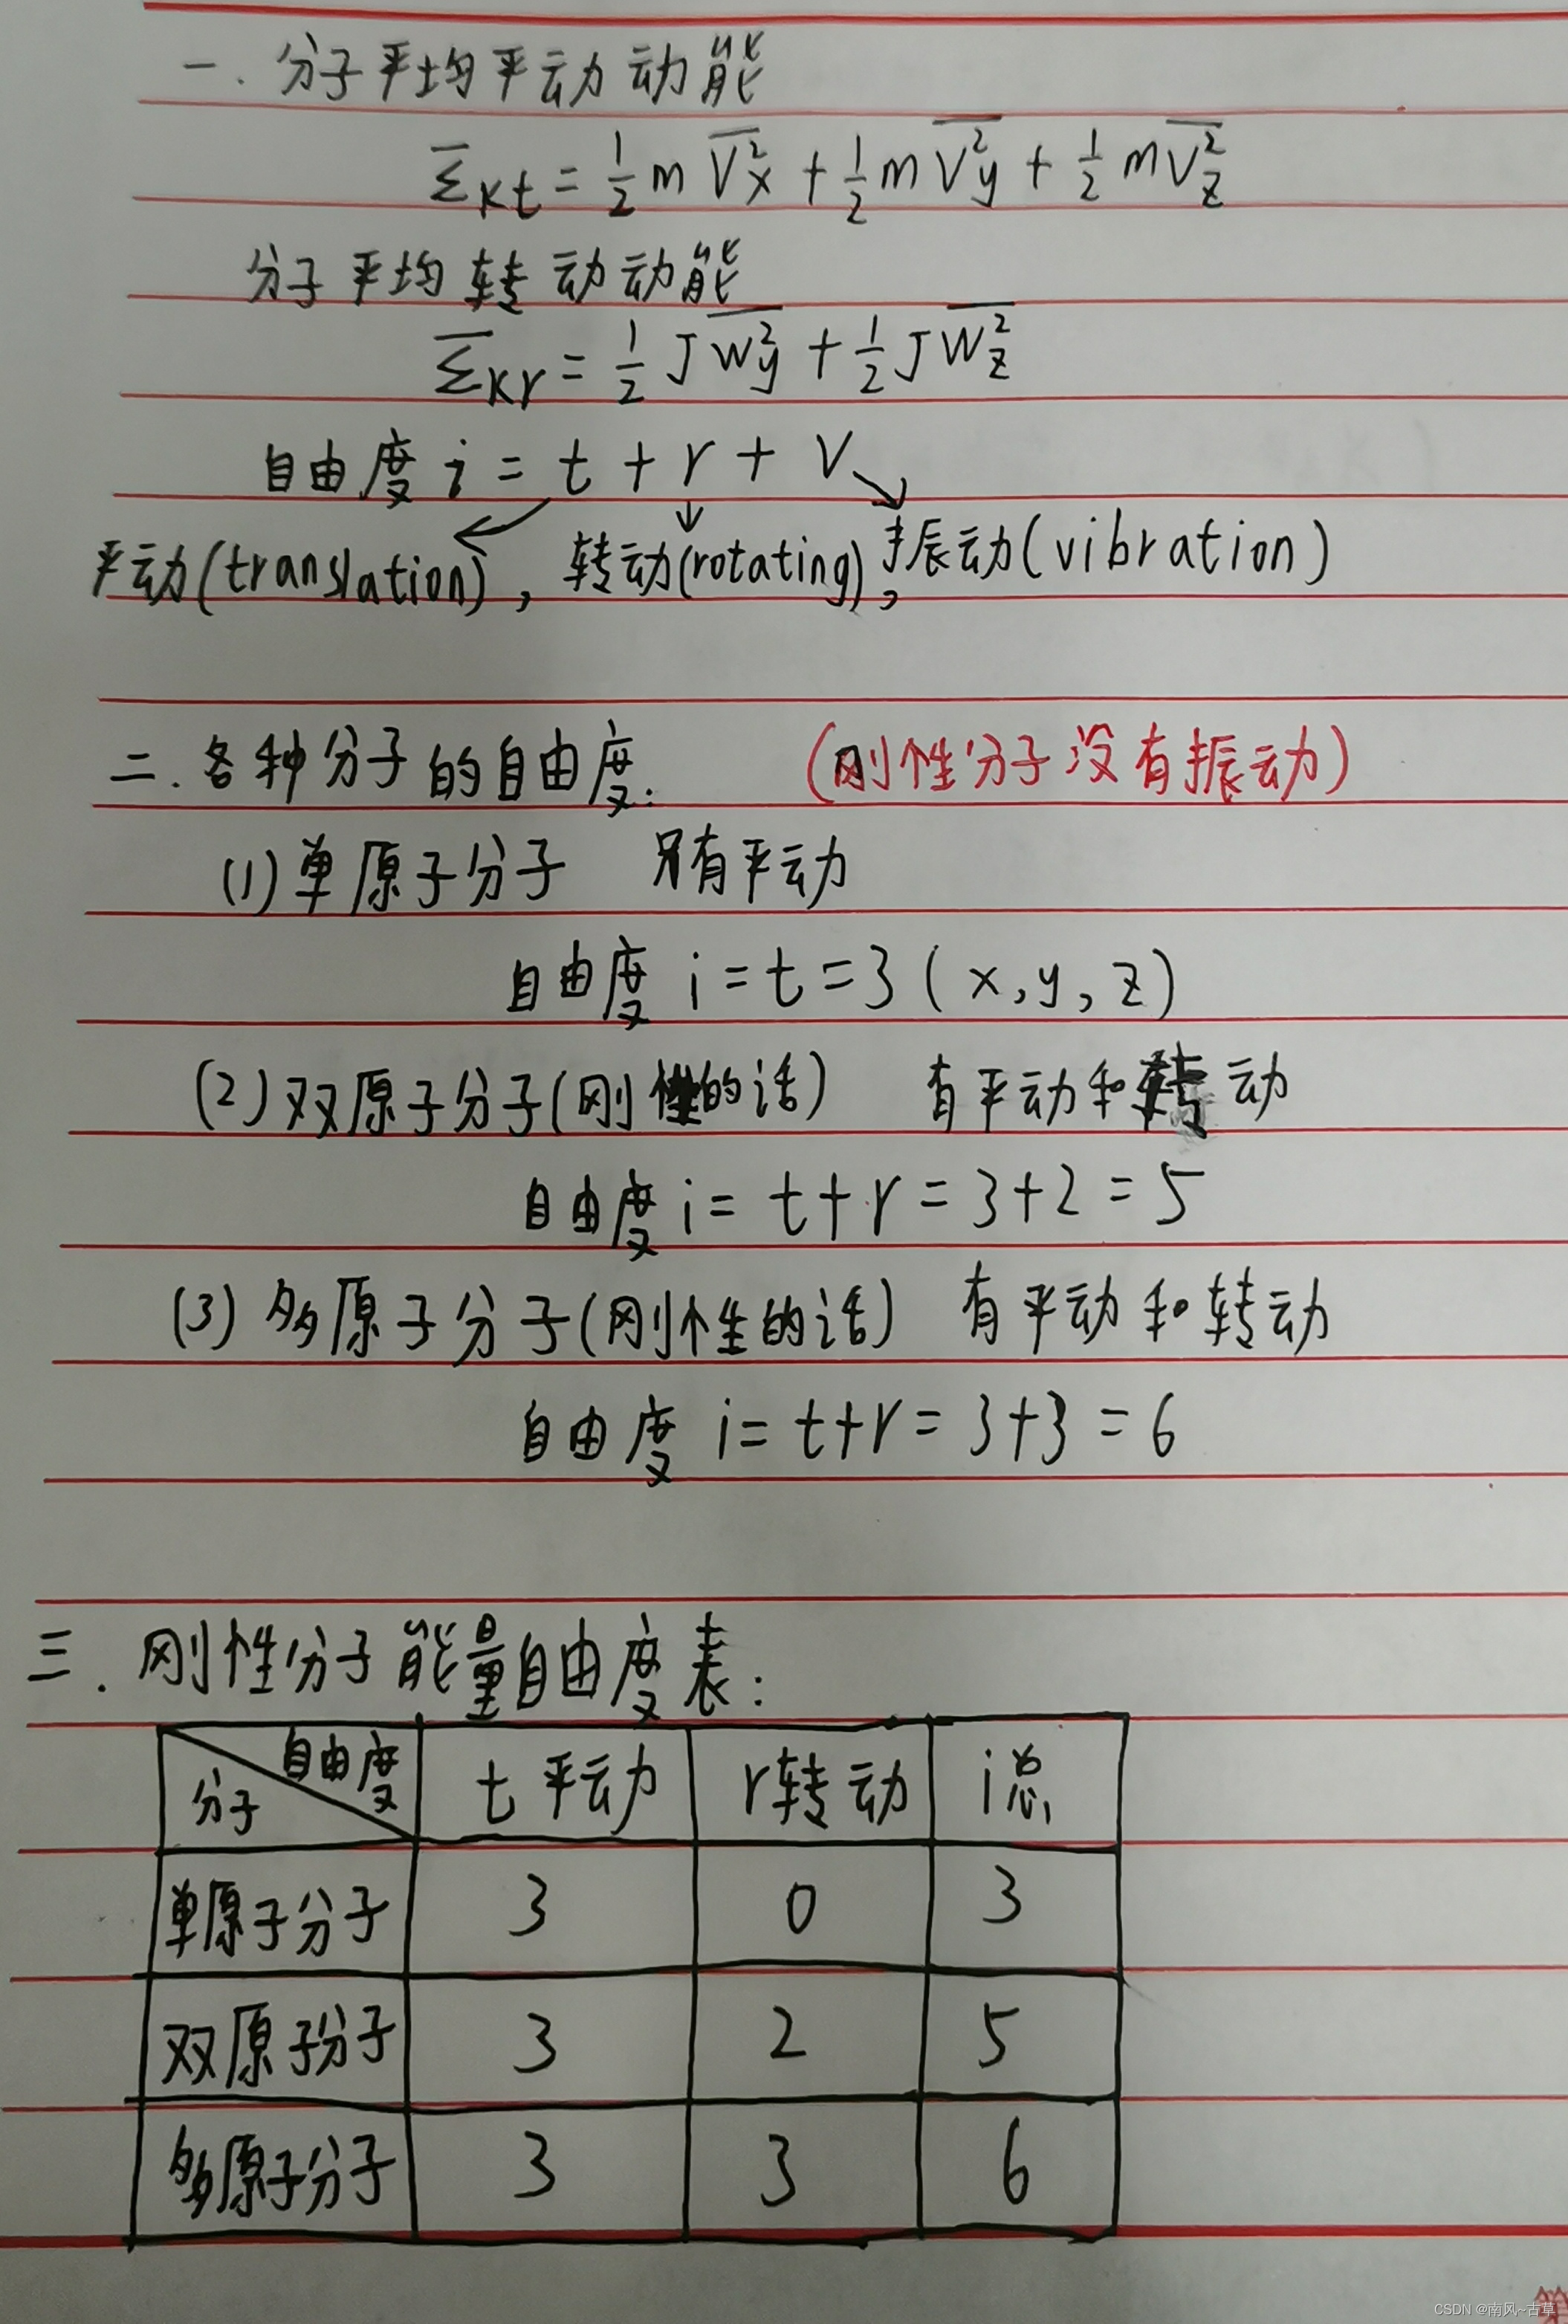 一. 分子平均平动动能
ε̄kt = 1/2 m V̄x² + 1/2 m V̄y² + 1/2 m V̄z²
分子平均转动动能
ε̄kr = 1/2 J W̄y² + 1/2 J W̄z²
自由度 i = t + r + v
平动(translation), 转动(rotating), 振动(vibration)
二. 各种分子的自由度: (刚性分子没有振动)
(1) 单原子分子 只有平动
自由度 i = t = 3 (x, y, z)
(2) 双原子分子(刚性的话) 有平动和转动
自由度 i = t + r = 3 + 2 = 5
(3) 多原子分子(刚性的话) 有平动和转动
自由度 i = t + r = 3 + 3 = 6
三. 刚性分子能量自由度表:
分子 自由度 t 平动 r 转动 i 总
单原子分子 3 0 3
双原子分子 3 2 5
多原子分子 3 3 6
CSDN @南风~古草